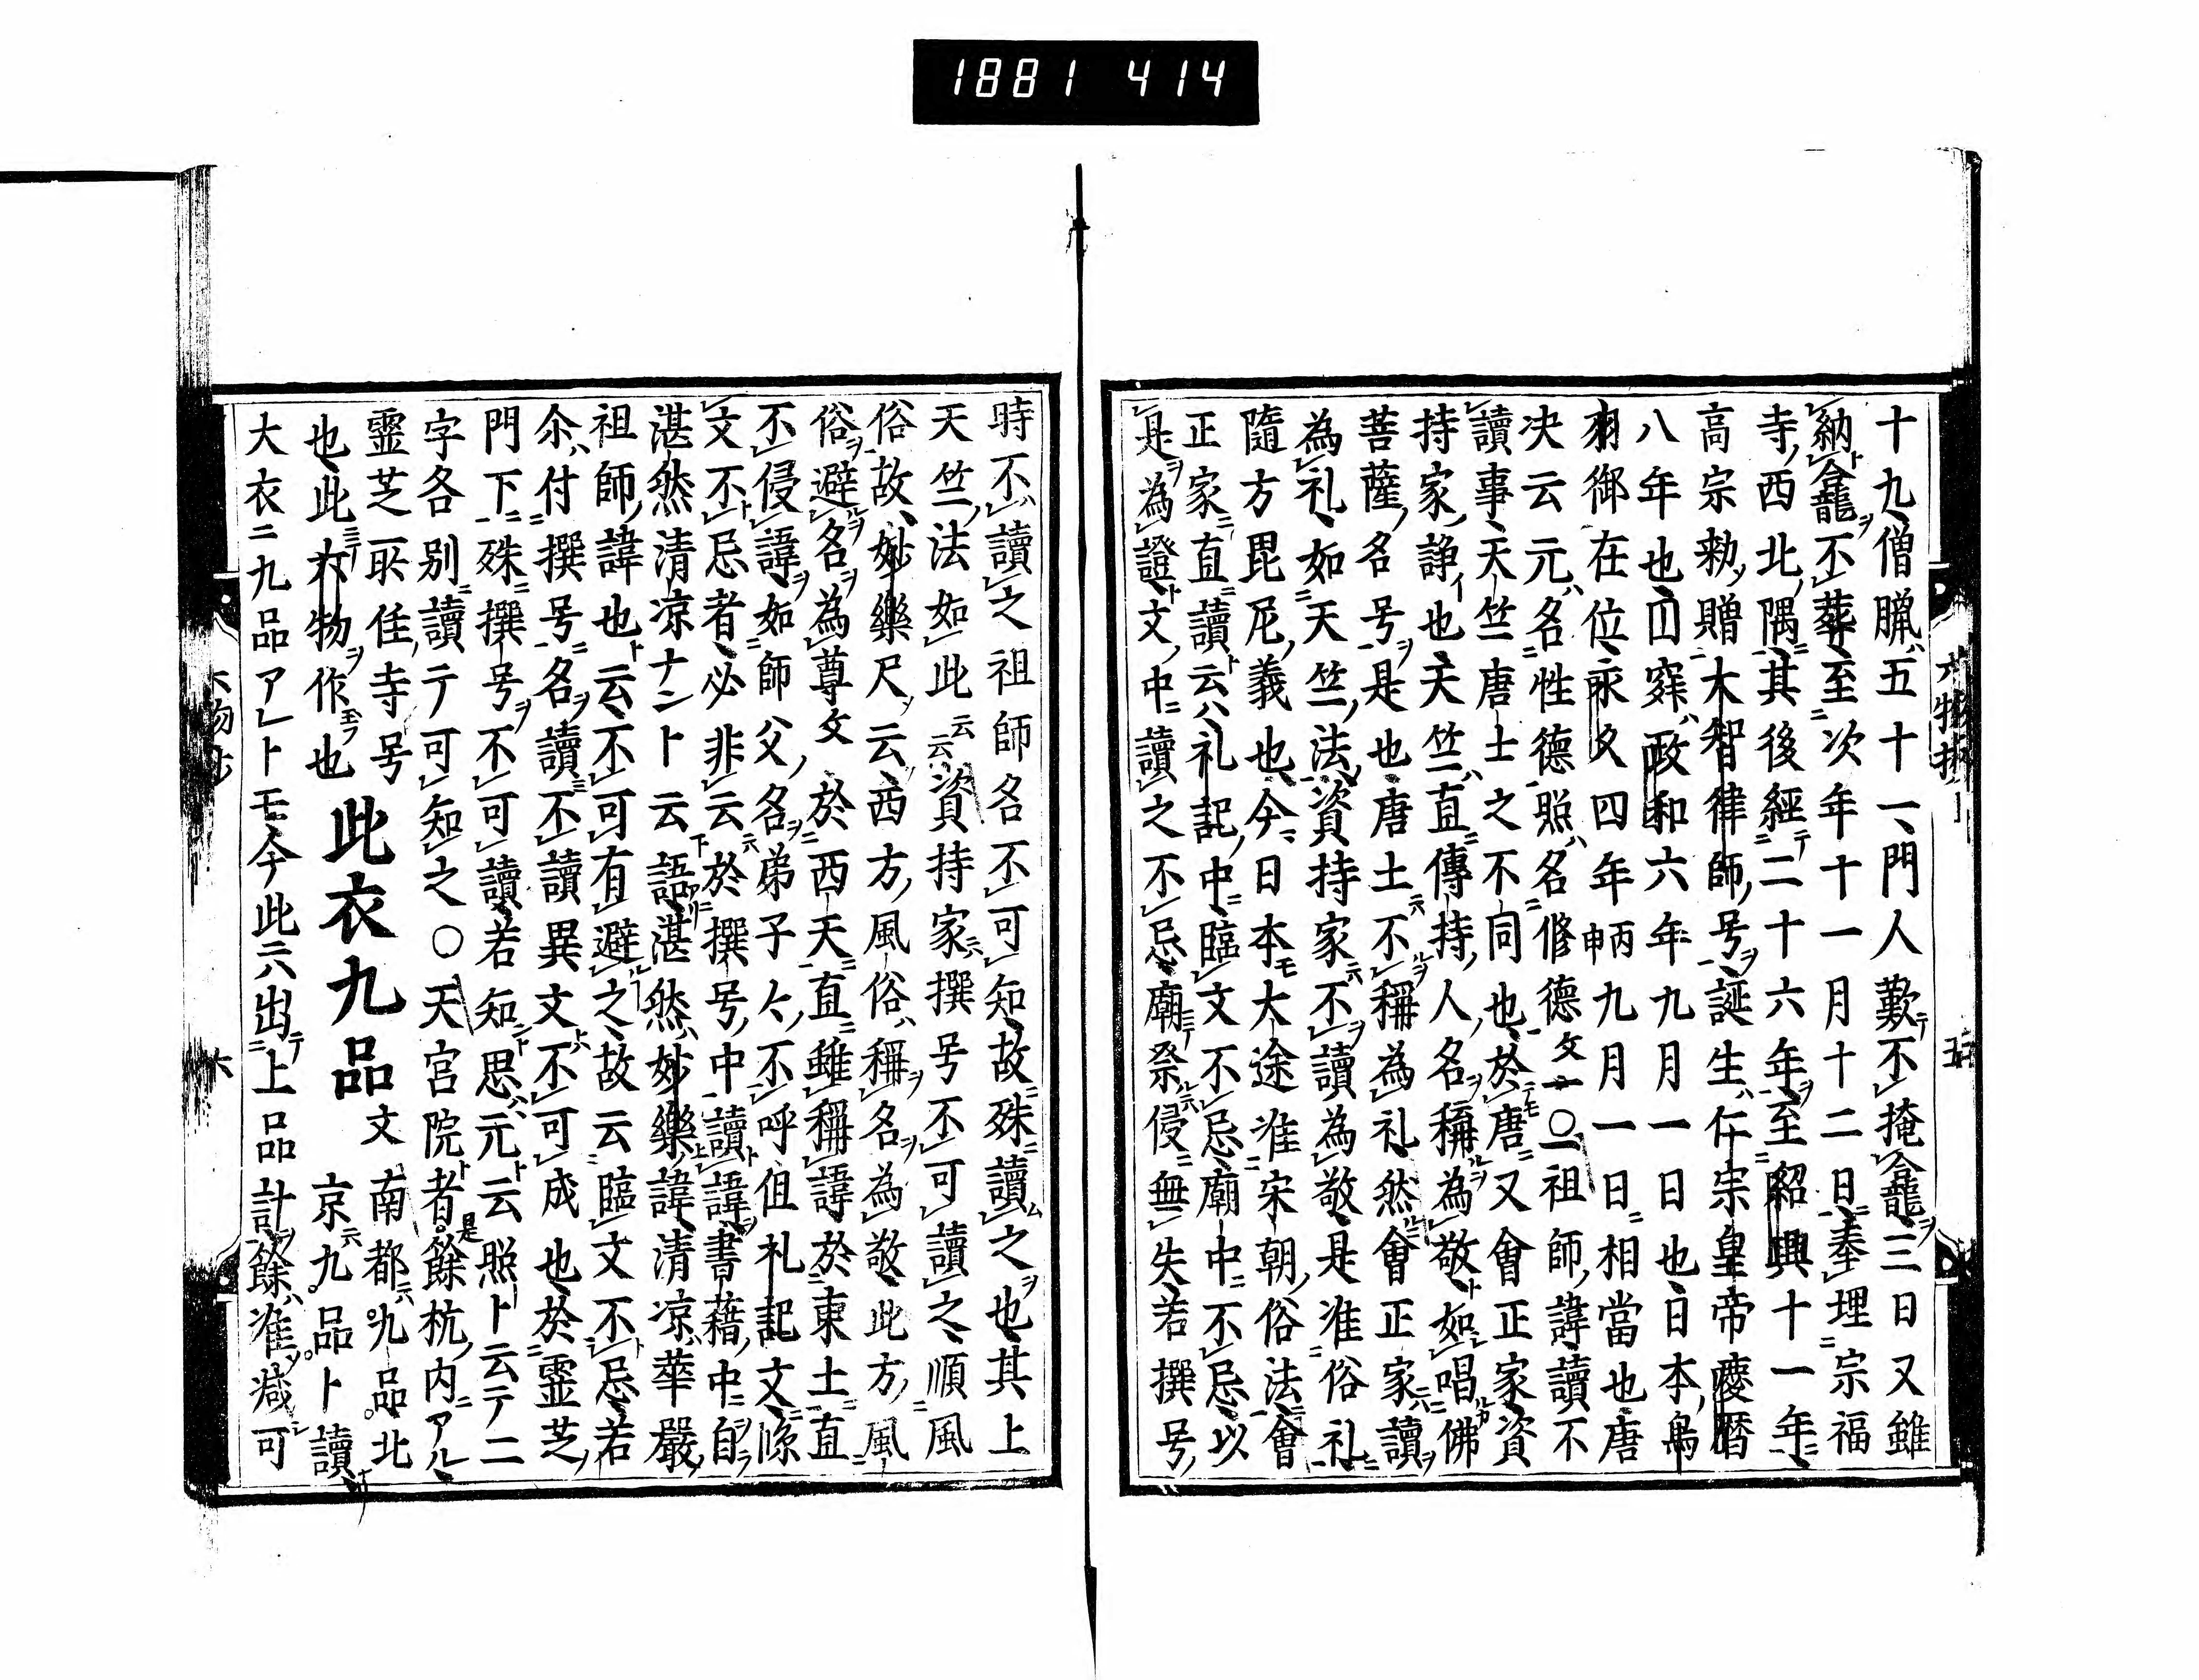 1881 414
十九僧臘五十一門人歎不掩龕三日又雖
納龕不葬至次年十一月十二日奉埋宗福
寺西北隅其後經二十六年至紹興十一年
高宗勅贈大智律師号誕生仁宗皇帝慶暦
八年也囗寂政和六年九月一日也日本鳥
羽御在位永久四年丙申九月一日相當也唐
决云元名性德照名修德文一〇一祖師諱讀不
讀事天竺唐士之不同也於唐又會正家資
持家諍也天竺直傳持人名稱為敬如唱佛
菩薩名号是也唐土不稱為礼然會正家讀
為礼如天竺法資持家不讀為敬是准俗礼
隨方毘尼義也今日本大途准宋朝俗法會
正家直讀云礼記中臨文不忌廟中不忌以
是為證文中讀之不忌廟祭侵無失若撰号
六物抄 五
時不讀之祖師名不可知故殊讀之也其上
天竺法如此云云資持家撰号不可讀之順風
俗故妙樂尺云西方風俗稱名為敬此方風
俗避名為尊文於西天直雖稱諱於東土直
不侵諱如師父名弟子人不呼但礼記文除
文不忌者必非云於撰号中讀諱書藉中自
湛然清凉ナント云語湛然妙樂諱清凉華嚴
祖師諱也云不可有避之故云臨文不忌若
尒付撰号名讀不讀異文不可成也於靈芝
門下殊撰号不可讀若知思元云照ト云テ二
字各別讀テ可知之〇天宮院者是餘杭内アル
靈芝所住寺号
也此六物作也此衣九品文南都九品北
京九品ト讀
大衣ニ九品アレトモ今此六出上品計餘准减可
六物抄 六